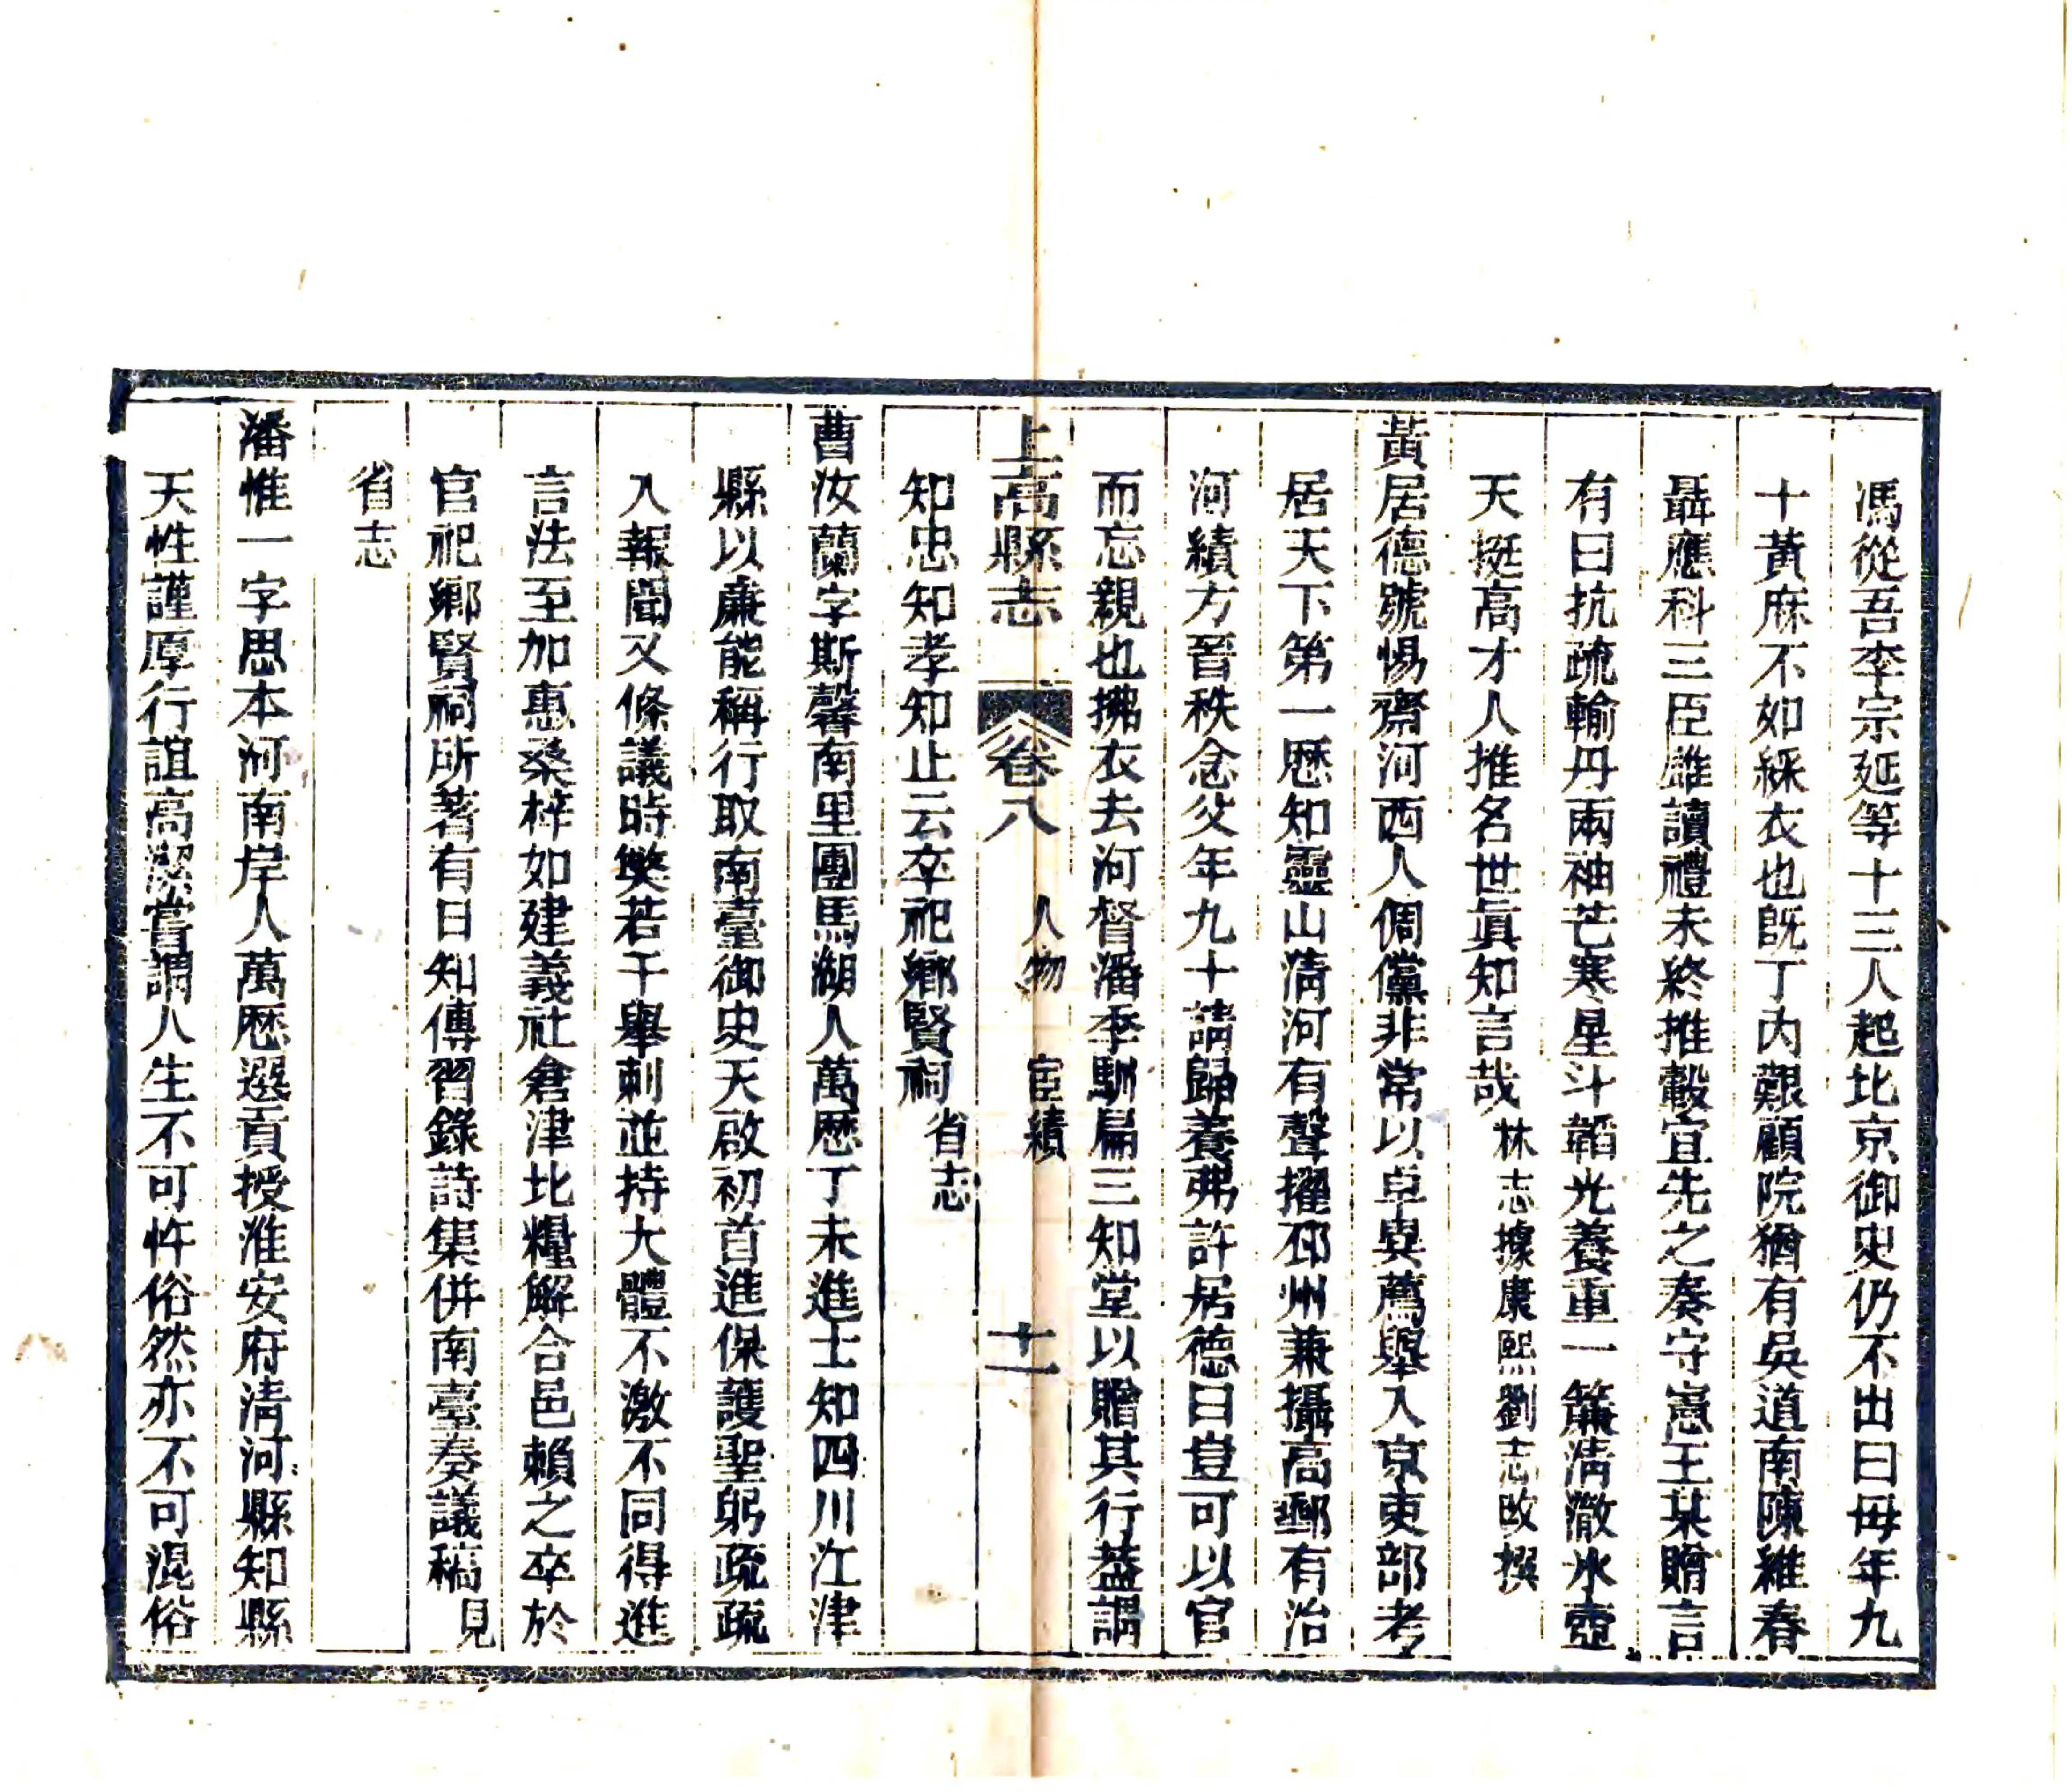 馮從吾李宗延等十三人起北京御史仍不出曰母年九
十黃麻不如綵衣也旣丁內艱顧院猶有吳道南陳維春
聶應科三臣雖讀禮未終推轂宜先之奏守憲王某贈言
有曰抗疏輸丹兩袖芒寒星斗韜光養重一簾淸澈氷壺
天挺高才人推名世眞知言哉林志據康熙劉志改撰
黃居德號惕齋河西人倜儻非常以卓異薦舉入京吏部考
居天下第一歷知靈山淸河有聲擢邳州兼攝高郵有治
河績方晉秩念父年九十請歸養弗許居德曰豈可以官
而忘親也拂衣去河督潘季馴扁三知堂以贈其行葢謂
上高縣志 卷八 人物 宦績 十一
知忠知孝知止云卒祀鄉賢祠省志
曹汝蘭字斯馨南里團馬湖人萬歷丁未進士知四川江津
縣以廉能稱行取南臺御史天啟初首進保護聖躬疏疏
入報聞又條議時獘若干舉刺並持大體不激不同得進
言法至加惠桑梓如建義社倉津北糧解合邑賴之卒於
官祀鄉賢祠所著有日知傳習錄詩集併南臺奏議稿見
省志
潘惟一字思本河南岸人萬歷選貢授淮安府淸河縣知縣
天性謹厚行誼高潔嘗謂人生不可忤俗然亦不可混俗